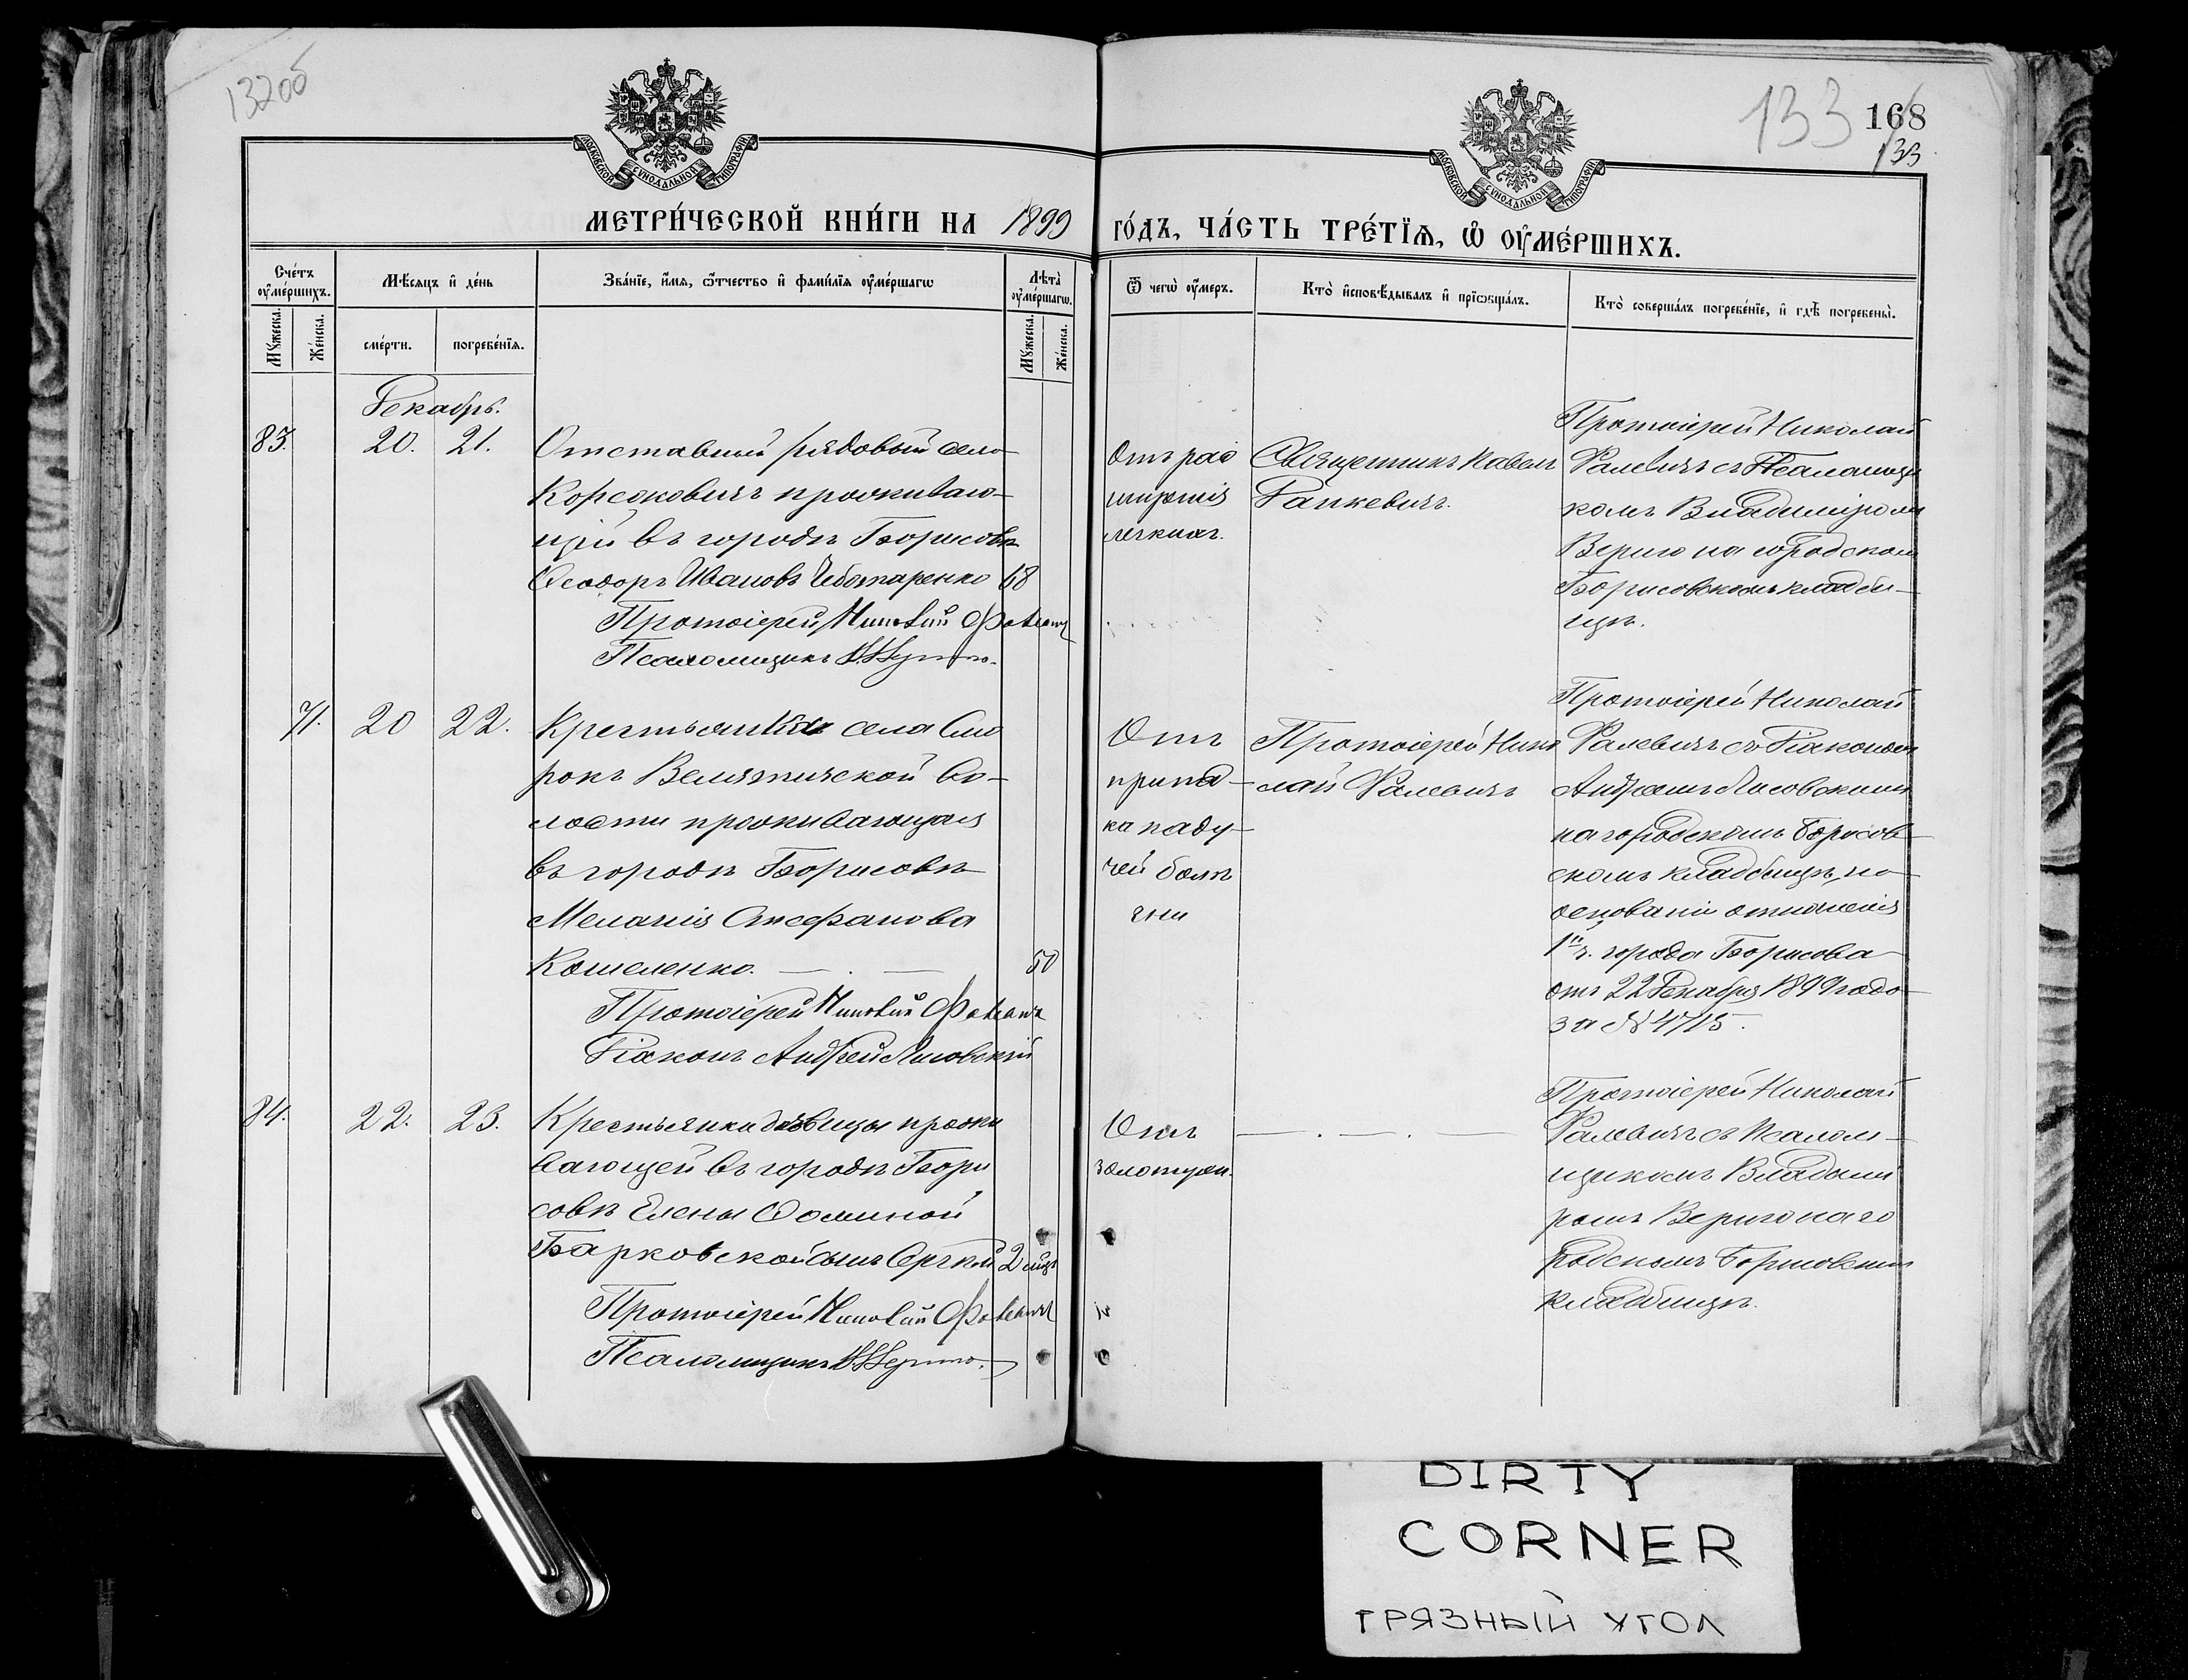 132об
133
168
133
МОСКОВСКОЙ СѴНОДАЛЬНОЙ ТИПОГРАФІИ
МОСКОВСКОЙ СѴНОДАЛЬНОЙ ТИПОГРАФІИ
МЕТРИ́ЧЕСКОЙ КНИ́ГИ НА 1899 ГО́ДЪ, ЧА́СТЬ ТРЕ́ТЇѦ, Ѽ ОУ҆МЕ́РШИХЪ.
Сче́тъ оу҆ме́ршихъ.
Мꙋ́жеска.
Же́нска.
Мѣ́сѧцъ и҆ де́нь
сме́рти.
погребе́нїѧ.
Зва́нїе, и҆́мѧ, ѻ҆́тчество и҆ фами́лїѧ оу҆ме́ршагѡ
Лѣта̀ оу҆ме́ршагѡ.
Мꙋ́жеска.
Же́нска.
Ѿ чегѡ̀ оу҆́меръ.
Кто̀ и҆сповѣ́дывалъ и҆ прїѡбща́лъ.
Кто̀ соверша́лъ погребе́нїе, и҆ гдѣ̀ погребены̀.
Декабрь.
83.
20.
21.
Отставный рядовый село
Корсаковичъ проживаю-
щій въ городѣ Борисовѣ
Ѳеодоръ Ивановъ Чеботаренко 68
Протоіерей Николай Фалевичъ
Псаломщикъ В. Вериго.
Отъ рас
ширенія
легкихъ.
Священникъ Павелъ
Гапкевичъ.
Протоіерей Николай
Фалевичъ съ Псаломщи
комъ Владиміромъ
Вериго на городскомъ
Борисовскомъ кладби-
щѣ.
71.
20
22.
Крестьянка села Смо
рокъ Велятичской во-
лости проживающая
въ городѣ Борисовѣ
Меланія Стефанова
Кошеленко. 50
Протоіерей Николай Фалевичъ
Діаконъ Андрей Лисовскій
Отъ
припад-
ка паду-
чей болѣ
зни
Протоіерей Нико
лай Фалевичъ
Протоіерей Николай
Фалевичъ съ Діакономъ
Андреемъ Лисовскимъ
на городскомъ Борисов-
скомъ кладбищѣ, на
основаніи отношенія
города Борисова
отъ 22 Декабря 1899 года
за № 4715.
84.
22.
23.
Крестьянки дѣвицы прожи
вающей въ городѣ Бори
совѣ Елены Ѳоминой
Барковской сынъ Сергѣй 2 мцъ
Протоіерей Николай Фалевичъ
Псаломщикъ В. Вериго.
Отъ
золотухи.
Протоіерей Николай
Фалевичъ съ Псалом-
щикомъ Владими
ромъ Вериго на го
родскомъ Борисовскомъ
кладбищѣ.
DIRTY
CORNER
ГРЯЗНЫЙ УГОЛ